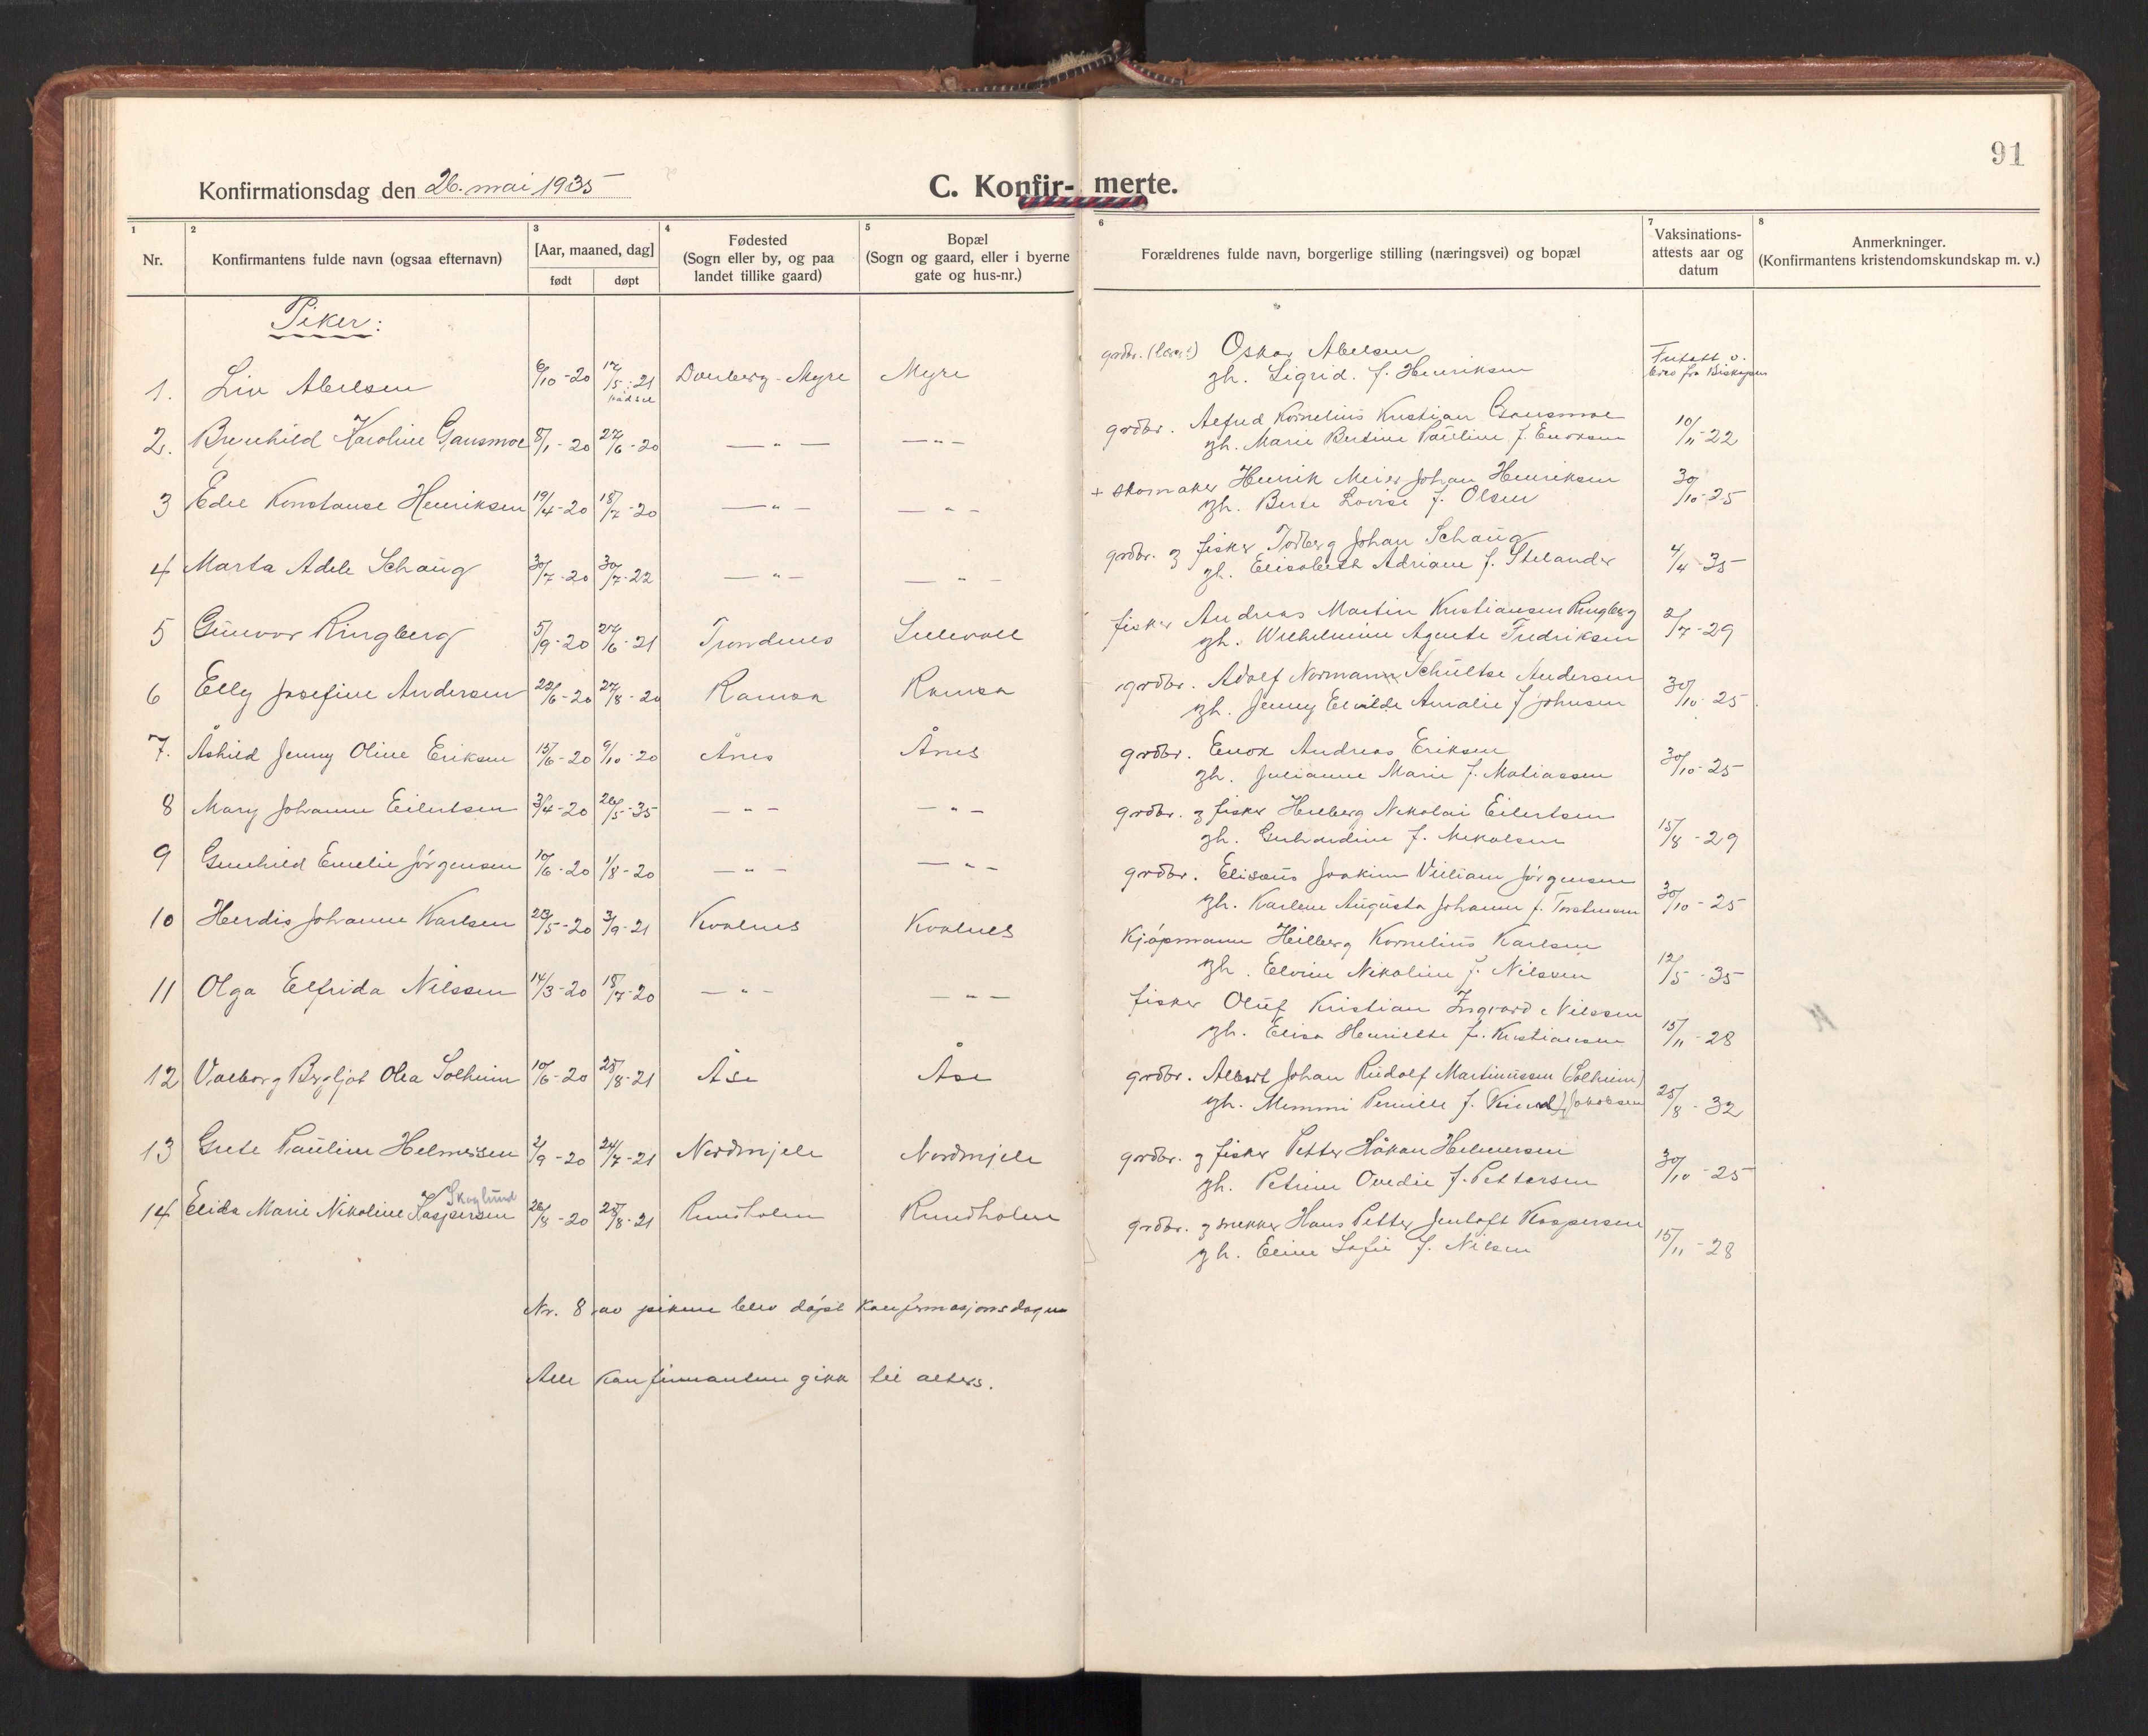 91
Konfirmationsdag den 26. mai 1935
C. Konfir- merte.
1 2 3 4 5 6 7 8
Nr.
Konfirmantens fulde navn (ogsaa efternavn)
[Aar, maaned, dag]
født døpt
Fødested
(Sogn eller by, og paa
landet tillike gaard)
Bopæl
(Sogn og gaard, eller i byerne
gate og hus-nr.)
Forældrenes fulde navn, borgerlige stilling (næringsvei) og bopæl
Vaksinations-
attests aar og
datum
Anmerkninger.
(Konfirmantens kristendomskundskap m. v.)
Piker:
1. Liv Abelsen 6/10-20 17/5-21 Dverberg-Myre Myre
grdbr. Oskar Abelsen
gh. Sigrid f. Henriksen
fra Biskopen
2. Brynhild Karoline Gansmoe 8/1-20 27/6-20 — " — — " —
grdbr. Alfred Kornelius Kristian Gansmoe
gh. Marie Bertine Pauline f. Enoksen 10/11-22
3 Edel Konstanse Henriksen 19/4-20 18/7-20 — " — — " —
+ skomaker Henrik Meier Johan Henriksen
gh. Berte Lovise f. Olsen 30/10-25
4 Marta Adele Schaug 30/7-20 30/7-22 — " — — " —
grdbr. og fisker Torberg Johan Schaug
gh. Elisabeth Adriane f. Stelander 4/4-35
5 Gunvor Ringberg 5/9-20 27/6-21 Trondenes
fisker Andreas Martin Kristiansen Ringberg
gh. Wilhelmine Agnete Fredriksen 2/7-29
6 Elly Josefine Andersen 22/6-20 27/8-20 Ramsa Ramsa
grdbr. Adolf Normann Schultse Andersen
gh. Jenny Elvilde Amalie f. Johnsen 30/10-25
7. Åshild Jenny Oline Eriksen 15/6-20 9/10-20 Ånes Ånes
grdbr. Enok Andreas Eriksen
gh. Julianne Marie f. Matiassen 30/10-25
8 Mary Johanne Eilertsen 3/4-20 26/5-35 — " — — " —
grdbr. og fisker Hilberg Nikolai Eilertsen
gh. Gerhardine f. Mikalsen 15/8-29
9 Gunhild Emelie Jørgensen 10/6-20 1/8-20 — " — — " —
grdbr. Elisæus Joakim Viliam Jørgensen
gh. Karlene Augusta Johanne f. 30/10-25
10 Herdis Johanne Karlsen 23/5-20 3/9-21 Kvalnes Kvalnes
Kjøpmann Hilberg Kornelius Karlsen
gh. Elvine Nikoline f. Nilssen 12/5-35
11 Olga Elfrida Nilssen 14/3-20 18/7-20 — " — — " —
fisker Oluf Kristian Ingvard Nilssen
gh. Elisa Henriette f. Kristiansen 15/11-28
12 Valborg Bergljot Olea Solheim 10/6-20 28/8-21 Åse Åse
grdbr. Albert Johan Rudolf Martinussen (Solheim)
gh. Memmi Pernille f. Jakobsen 25/8-32
13 Grete Pauline Helmersen 2/9-20 24/7-21 Nordmjele Nordmjele
grdbr. og fisker Petter Håkan Helmersen
gh. Petrine Ovedie f. Pettersen 30/10-25
Skoglund
14 Elida Marie Nikoline Kaspersen 26/8-20 28/8-21 Rundholen Rundholen
grdbr. og snekker Hans Petter Jentoft Kaspersen
gh. Eline Sofie f. Nilsen 15/11-28
Nr. 8 av pikene blev døpt konfirmasjonsdagen
Alle konfirmantene gikk til alters.